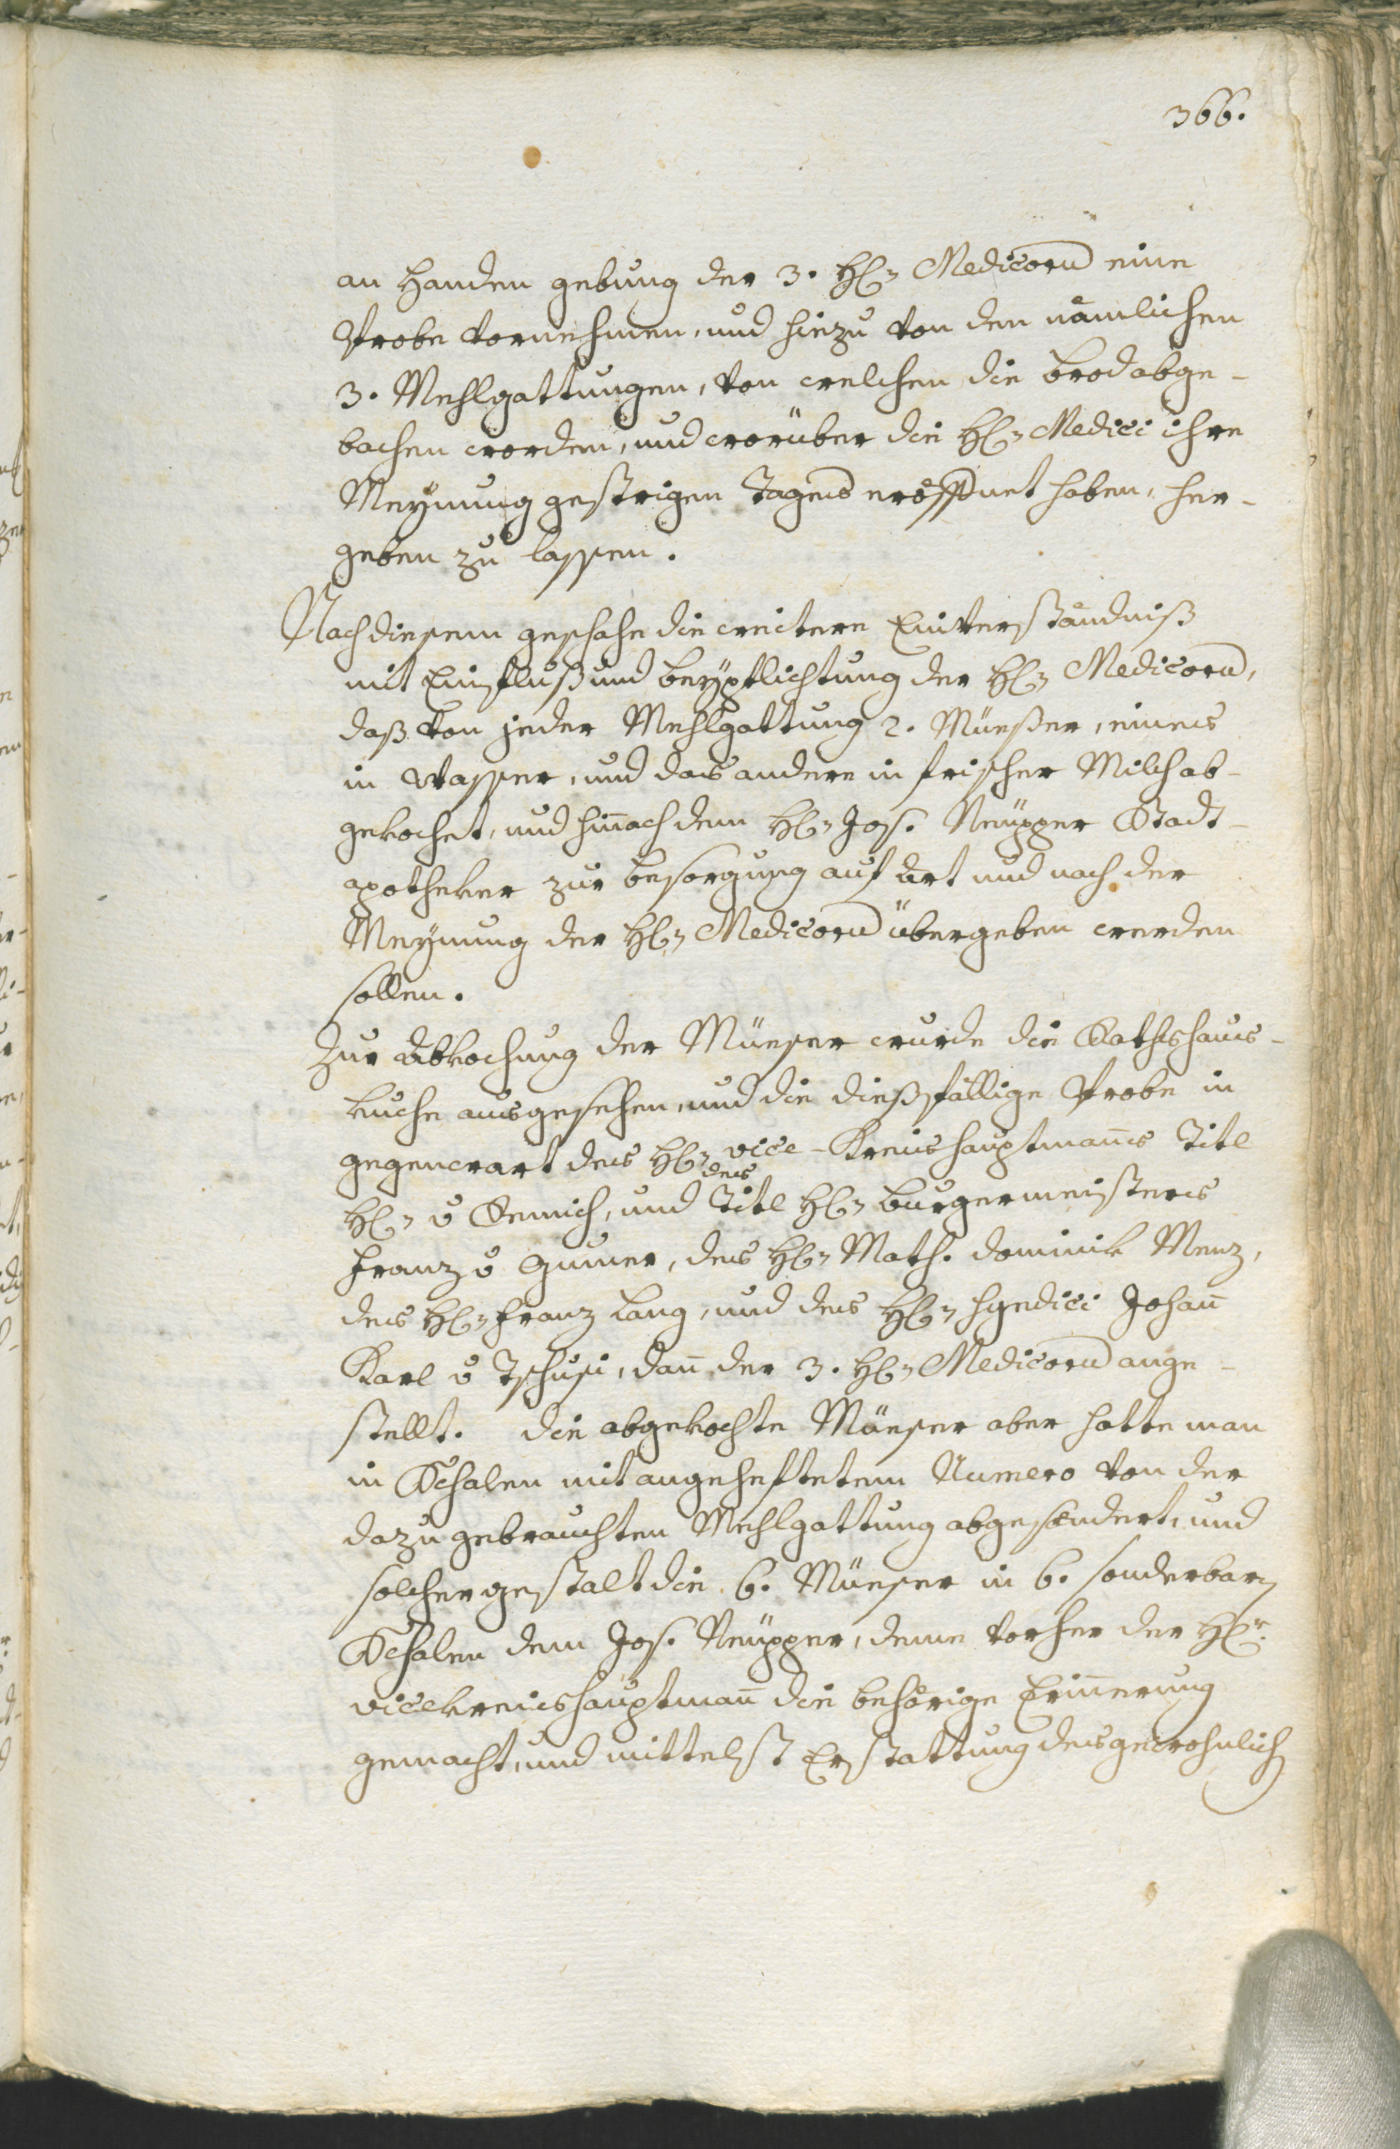 366.
an Handen gebung der 3. H[en] Medicorū eine
Probe vornehmen, und hiezu von den nämlichen
3. Mehlgattungen, von welchen die Brod abge-
bachen worden, und worüber die H[en] Medici ihre
Meÿnung gestrigen Tages eröffnet haben, her-
geben zu lassen.
Nach diesem geschahe die weitere Einverständniß
mit Einfluß und Beÿpflichtung der H[en] Medicorū,
daß von jeder Mehlgattung 2. Müeßer, eines
in Wasser, und das andere in frischer Milch ab-
gekochet, und hinach dem H[en] Jos. Neupper Stadt-
apotheker zur Besorgung auf Art und nach der
Meÿnung der H[en] Medicorū übergeben werden
sollen.
Zur Abkochung der Müeser wurde die Rathshaus-
kuche ausgesehen, und die dießfällige Probe in
gegenwart des H[en] Vice-Kreishauptmañs Titl
H[en] v Semich, und des Titl H[en] Burgermeisters
Franz v Gumer, des H[en] Math. Dominik Menz,
des H[en] Franz Lang, und des H[en] Syndici Johañ
Karl v Tschusi, dañ der 3. H[en] Medicorū ange-
stellt. Die abgekochte Müeser aber hatte man
in Schalen mit angeheftetem Numero von der
dazu gebrauchten Mehlgattung abgesöndert, und
solchergestalt die 6. Müeser in 6. sonderbarn
Schalen dem Jos. Neupper, deme vorher der H[r].
Vicekreishauptmañ die behörige Eriñerung
gemacht, und mittelst Erstattung des gewohnlich